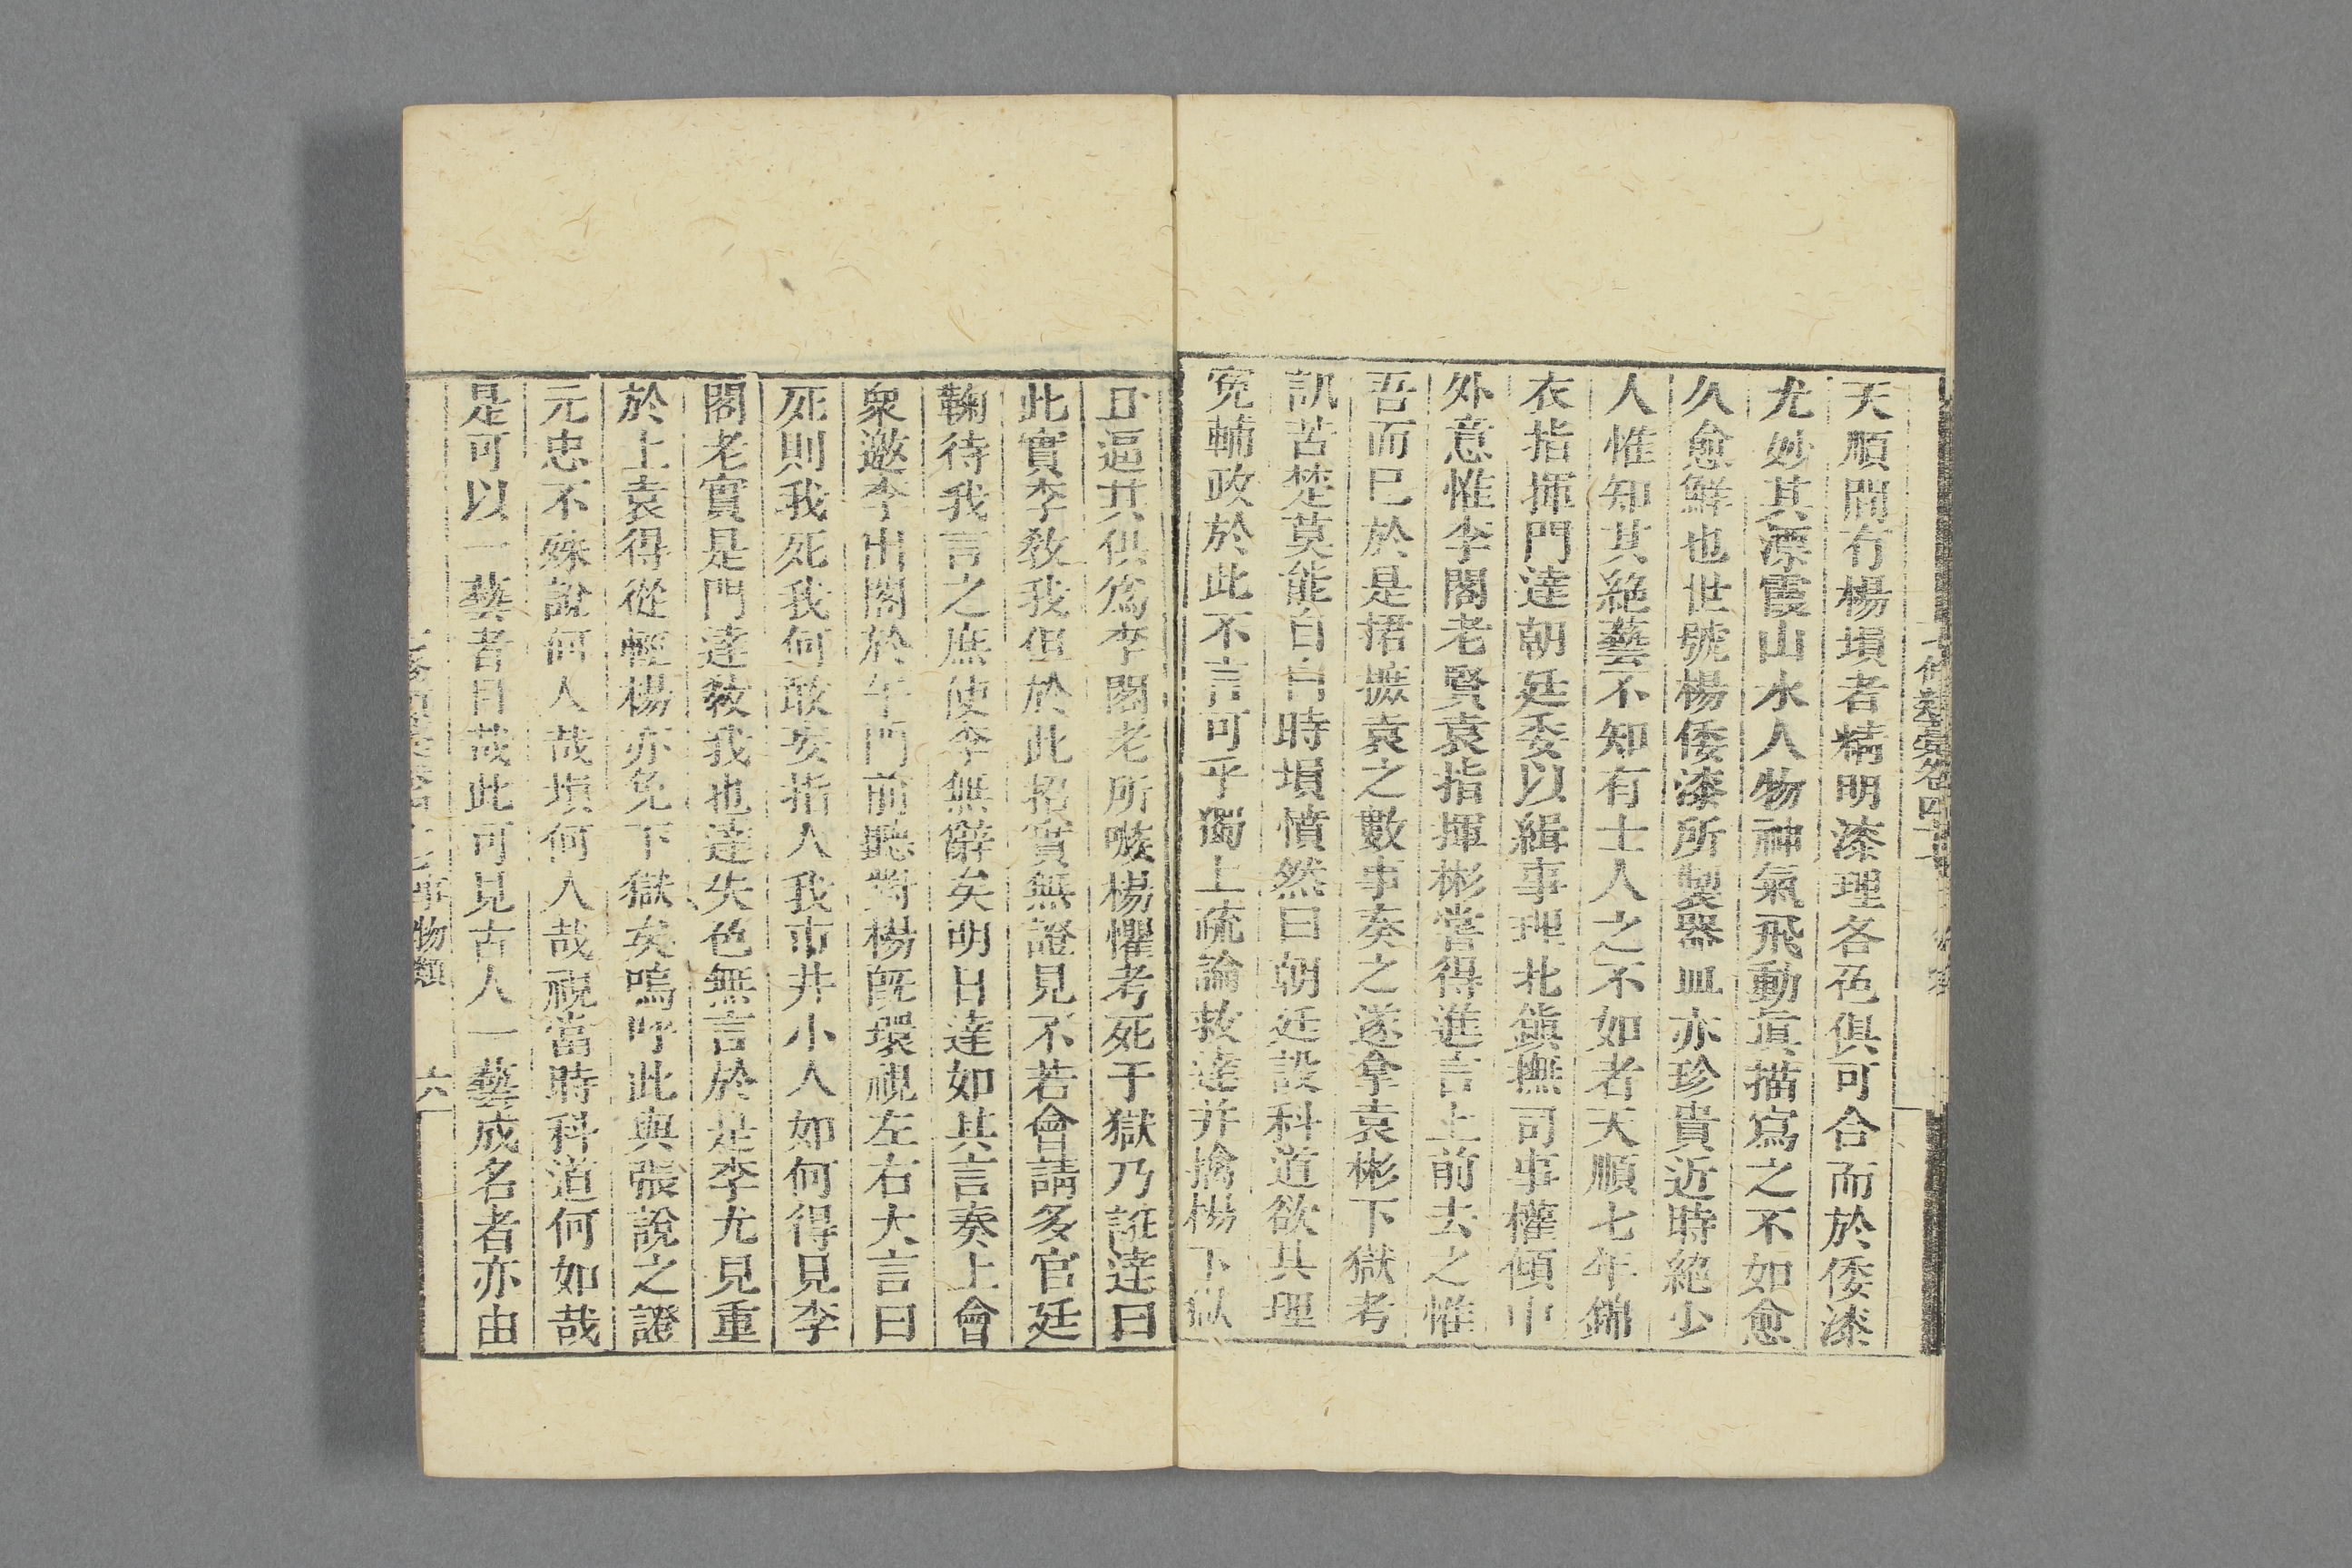 七修類稾卷四十
天順間有楊塤者精明漆理各色俱可合而於倭漆
尤妙其漂霞山水人物神氣飛動眞描寫之不如愈
久愈鮮也世號楊倭漆所製器皿亦珍貴近時絕少
人惟知其絕藝不知有士人之不如者天順七年錦
衣指揮門達朝廷委以緝事理北鎮撫司事權傾中
外意惟李閣老賢袁指揮彬嘗得進言上前去之惟
吾而已於是捃摭袁之數事奏之遂拿袁彬下獄考
訊苦楚莫能自白時塤憤然曰朝廷設科道欲其理
冤輔政於此不言可乎獨上疏論救達并擒楊下獄
且逼其供爲李閣老所嗾楊懼考死于獄乃誑達曰
此實李敎我但於此招實無證見不若會請多官廷
鞠待我言之庶使李無辭矣明日達如其言奏上會
衆邀李出閣於午門前聽對楊旣環視左右大言曰
死則我死我何敢妄指人我市井小人如何得見李
閣老實是門達敎我也達失色無言於是李尤見重
於上袁得從輕楊亦免下獄矣嗚呼此與張說之證
元忠不殊說何人哉塤何人哉視當時科道何如哉
是可以一藝者目哉此可見古人一藝成名者亦由
事物類 六